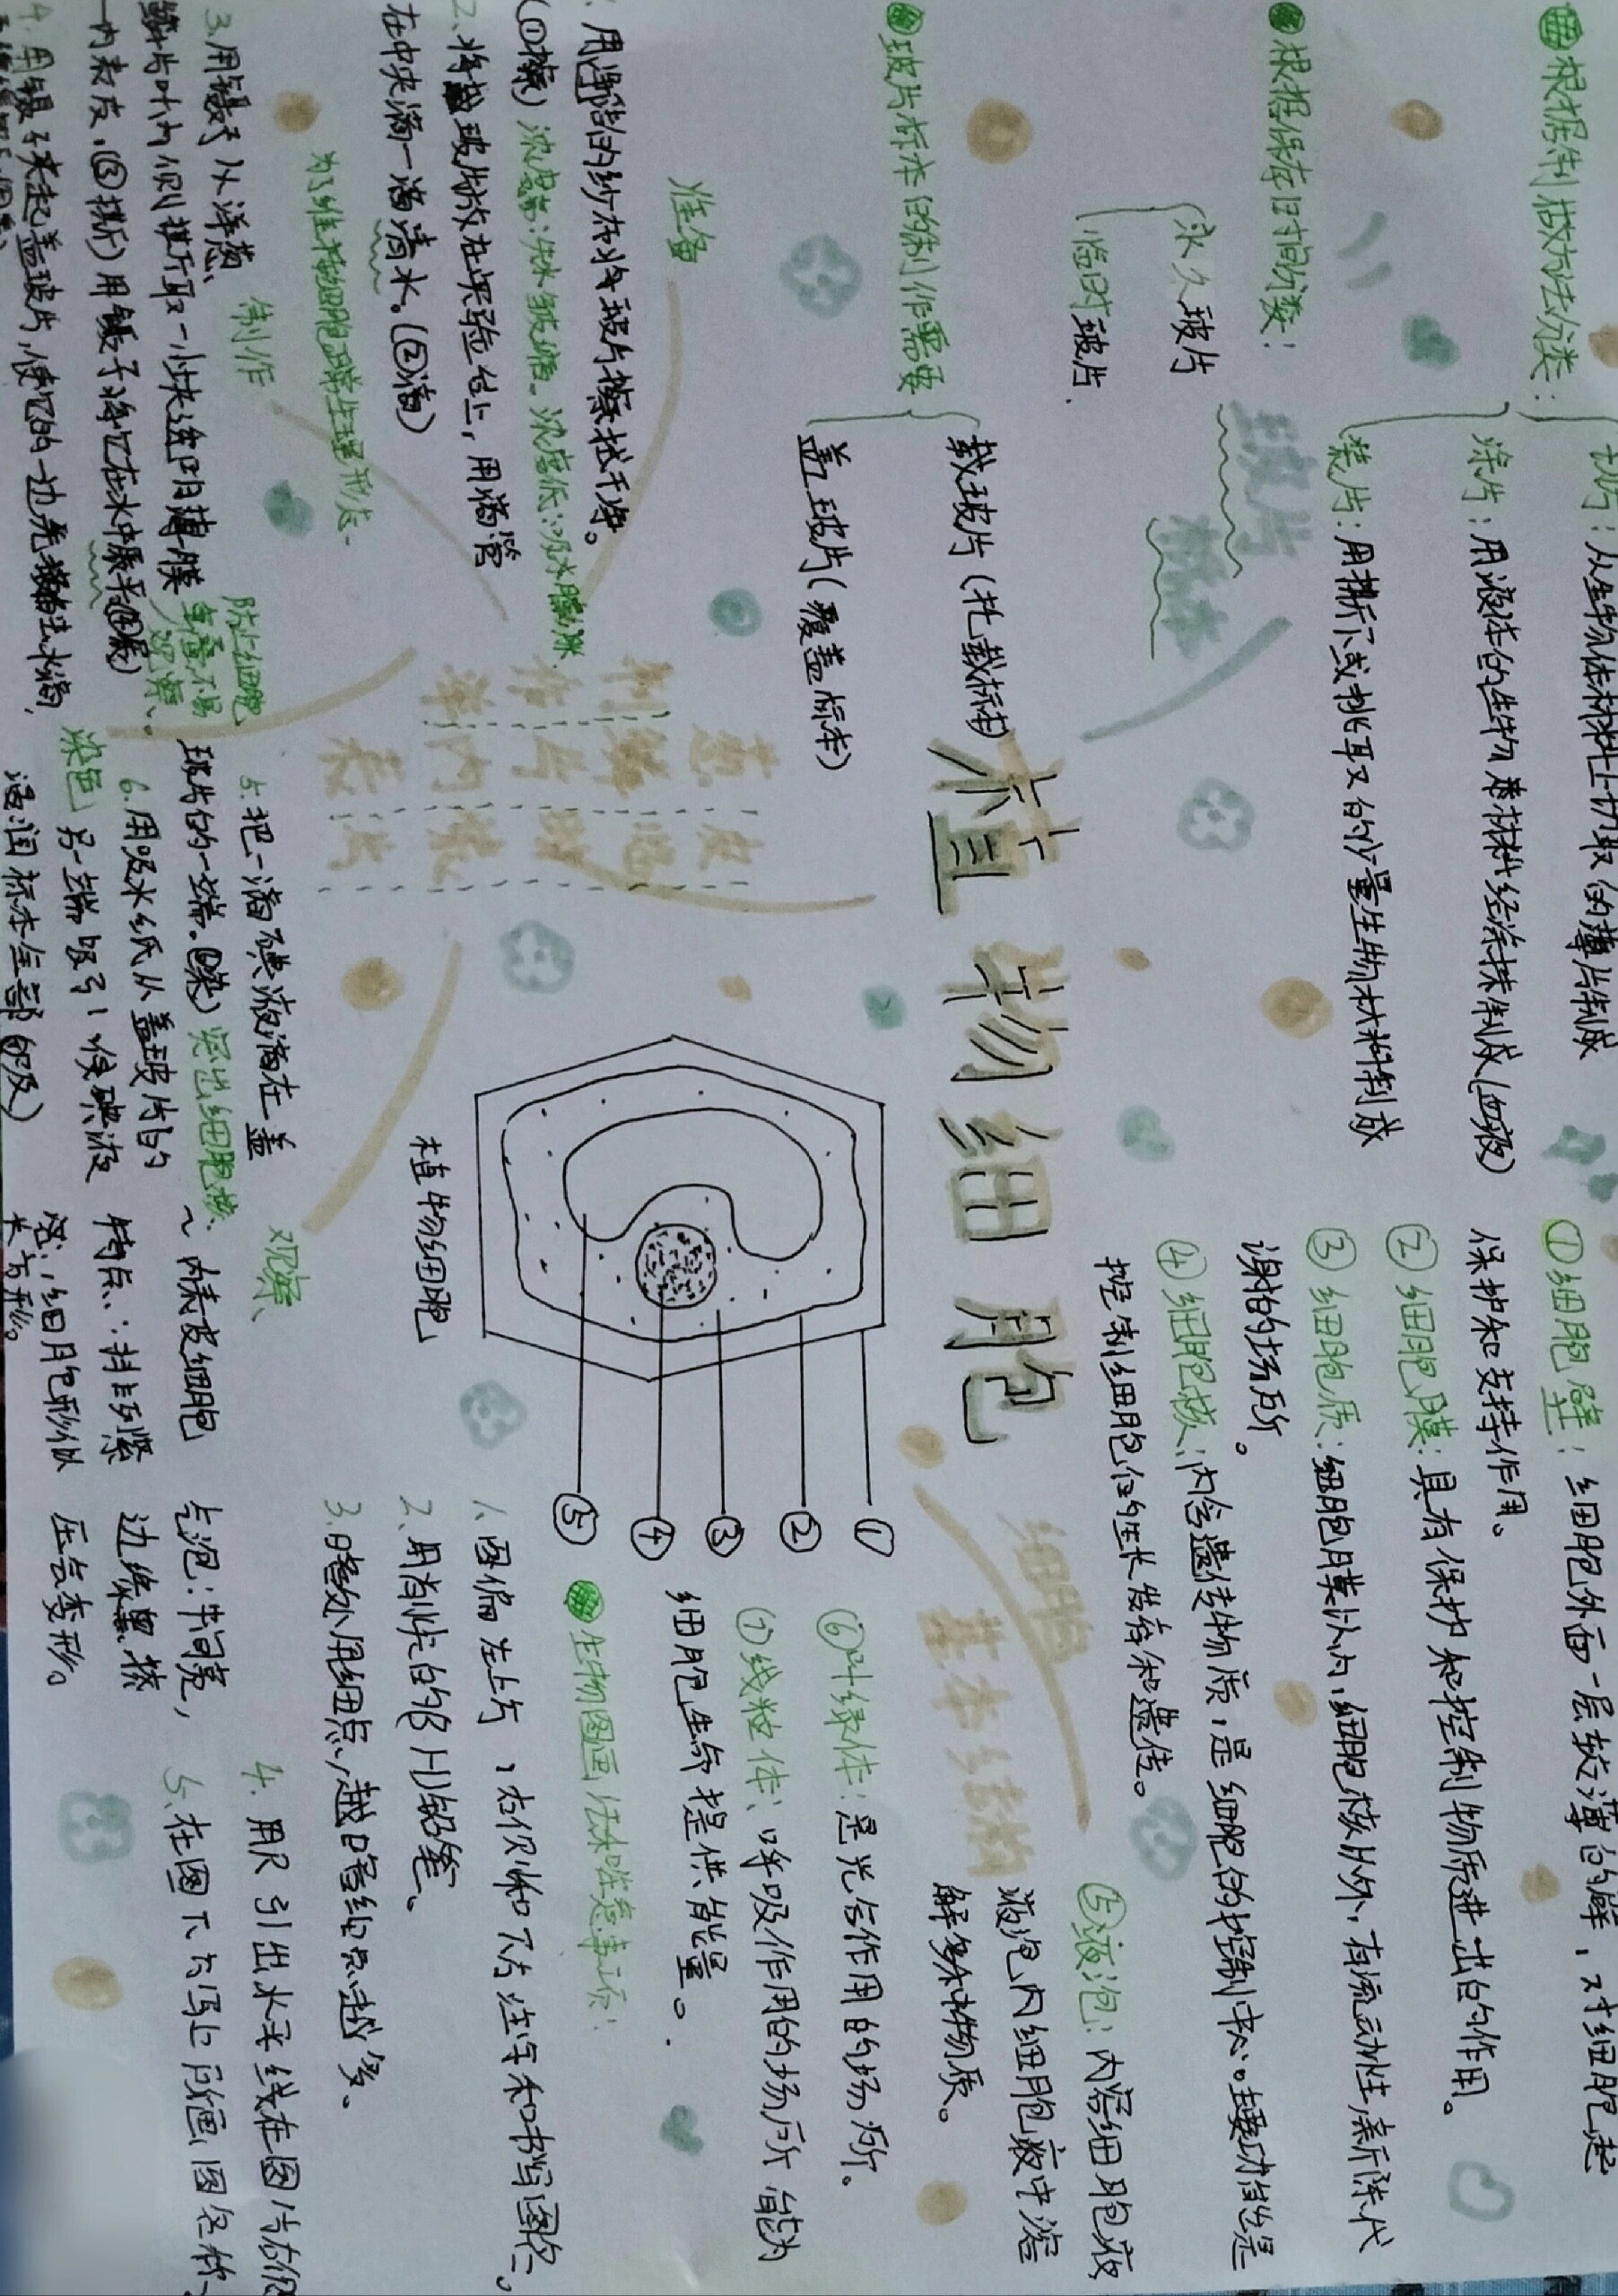 根据制做方法分类：
切片：从生物体材料上切取的薄片制成
涂片：用液体的生物材料经涂抹制成(血液)
装片：用撕下或挑取的少量生物材料制成
根据保存时间分类：
永久玻片
临时玻片.
玻片标本
玻片标本的制作需要
载玻片(托载标本)
盖玻片(覆盖标本)
植物细胞
细胞
基本结构
①细胞壁：细胞外面一层较薄的壁，对细胞起
保护和支持作用。
②细胞膜：具有保护和控制物质进出的作用。
③细胞质：细胞膜以内，细胞核以外，有流动性,新陈代
谢的场所。
④细胞核：内含遗传物质，是细胞的控制中心。主要功能是
控制细胞的生长发育和遗传。
⑤液泡：内含细胞液
液泡内细胞液中溶
解多种物质。
⑥叶绿体：是光合作用的场所。
⑦线粒体：呼吸作用的场所 能为
细胞生命提供能量。
①
②
③
④
⑤
植物细胞
制作洋
葱鳞片叶内表
皮临时装片
准备
1.用洁净的纱布将玻片擦拭干净。
(①擦) 浓度高：失水皱缩。浓度低：吸水膨胀.
2.将载玻片放在实验台上，用滴管
在中央滴一滴清水。(②滴)
为了维持细胞正常生理形态.
制作
3.用镊子从洋葱
鳞片叶内侧撕取一小块透明薄膜
一内表皮.(③撕)用镊子将它在水中展平(④展)
防止细胞
重叠不易
观察、
4.用镊子夹起盖玻片,使它的一边先接触水滴,
染色
5.把一滴碘液滴在盖
玻片的一端。(染) 突出细胞核、
6.用吸水纸从盖玻片的
另一端吸引,使碘液
浸润标本全部(吸)
观察、
~内表皮细胞
特点：排列紧
密，细胞形似
长方形。
气泡：中间亮，
边缘黑,挤
压会变形。
生物图画法和注意事项：
1.图偏左上方，右侧和下方注字和书写图名。
2.用削尖的3H铅笔、
3.暗处用细点,越暗细点越多、
4.用尺引出水平线在图的右侧
5.在图下方写上所画图名称、